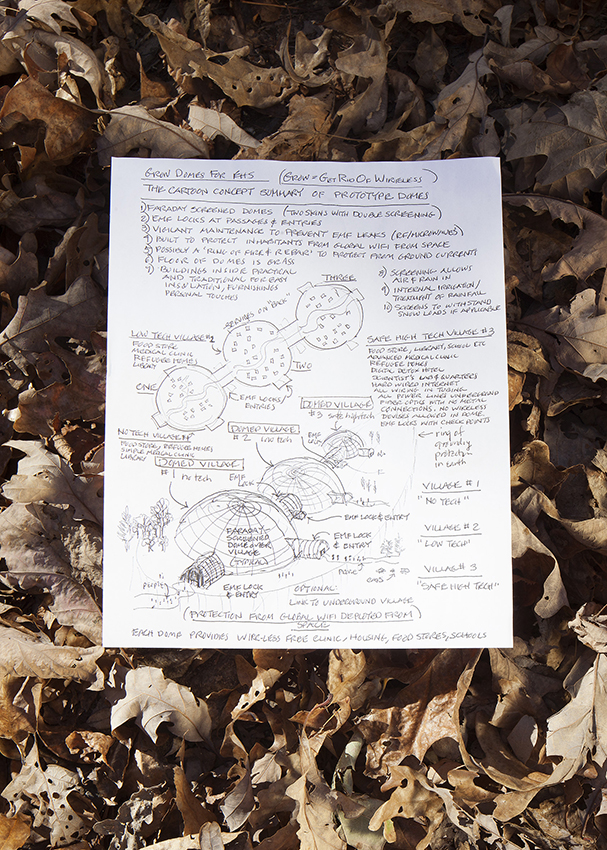 GROW DOMES FOR EHS (GROW = GET RID OF WIRELESS)
THE CARTOON CONCEPT SUMMARY OF PROTOTYPE DOMES
1) FARADAY SCREENED DOMES (TWO SKINS WITH DOUBLE SCREENING)
2) EMF LOCKS AT PASSAGES & ENTRIES
3) VIGILANT MAINTENANCE TO PREVENT EMF LEAKS (RF/MICROWAVES)
4) BUILT TO PROTECT INHABITANTS FROM GLOBAL WIFI FROM SPACE
5) POSSIBLY A "RING OF FIRE & REPAIR" TO PROTECT FROM GROUND CURRENT
6) FLOOR OF DOMES IS GRASS
7) BUILDINGS INSIDE PRACTICAL
AND TRADITIONAL FOR EASY
INSULATION, FURNISHINGS
PERSONAL TOUCHES
8) SCREENING ALLOWS
AIR & RAIN IN
9) INTERNAL IRRIGATION/
TREATMENT OF RAINFALL
10) SCREENS TO WITHSTAND
SNOW LOADS IF APPLICABLE
THREE
TWO
ONE
EMF LOCKS
ENTRIES
LOW TECH VILLAGE #2
FOOD STORE
MEDICAL CLINIC
REFUGEE HOMES
LIBRARY
SAFE HIGH TECH VILLAGE #3
FOOD STORE, LIBRARY, SCHOOL ETC
ADVANCED MEDICAL CLINIC
REFUGEE HOMES
DIGITAL DETOX HOTEL
SCIENTIST'S LAB & QUARTERS
HARD WIRED INTERNET
ALL WIRING IN TUBING
ALL POWER LINES UNDERGROUND
FIBER OPTICS WITH NO METAL
CONNECTIONS. NO WIRELESS
DEVISES ALLOWED IN DOME.
EMF LOCKS WITH CHECK POINTS
NO TECH VILLAGE #1
FOOD STORE, REFUGEE HOMES
SIMPLE MEDICAL CLINIC
LIBRARY
DOMED VILLAGE
#1 no tech
EMF
LOCK
DOMED VILLAGE
#2 low tech
DOMED VILLAGE
#3 safe high tech
EMF
LOCK
ring of
grounding
protection
in earth
EMF LOCK & ENTRY
EMF LOCK
& ENTRY
FARADAY-
SCREENED
DOME OVER
VILLAGE
(TYPICAL)
EMF LOCK
& ENTRY
OPTIONAL:
LINK TO UNDERGROUND VILLAGE
VILLAGE #1
"NO TECH"
VILLAGE #2
"LOW TECH"
VILLAGE #3
"SAFE HIGH TECH"
(PROTECTION FROM GLOBAL WIFI DEPLOYED FROM
SPACE)
EACH DOME PROVIDES WIRE-LESS FREE CLINIC, HOUSING, FOOD STORES, SCHOOLS